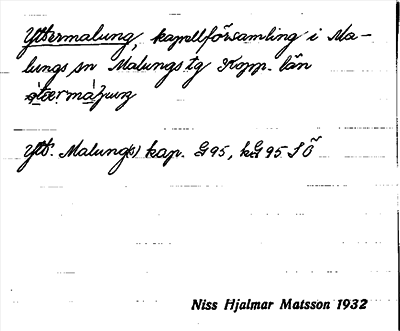 Yttermalung, kapellförsamling i Ma-
lungs sn Malungs tg Kopp. län
Ytt. Malung(s) kap. G95, kG 95 SÖ
Niss Hjalmar Matsson 1932